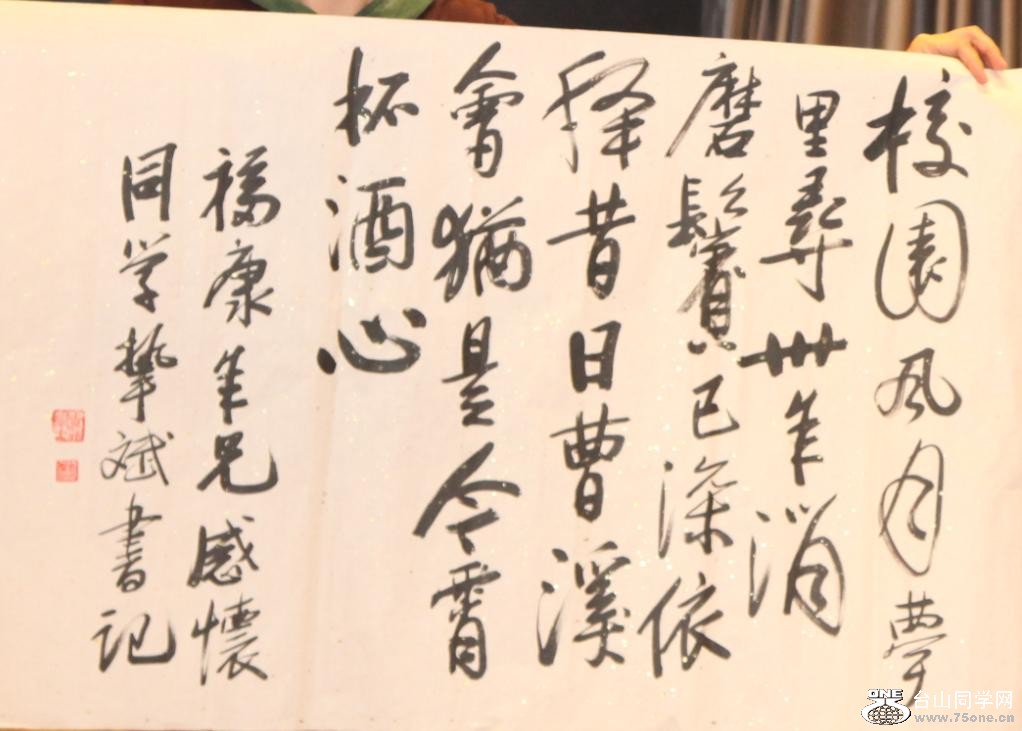 校園風月夢
里尋卅年消
磨鬢已深依
稀昔日曹溪
會猶是今宵
杯酒心
福康年兄感懷
同学挚斌書记
ONE
台山同学网
www.75one.cn